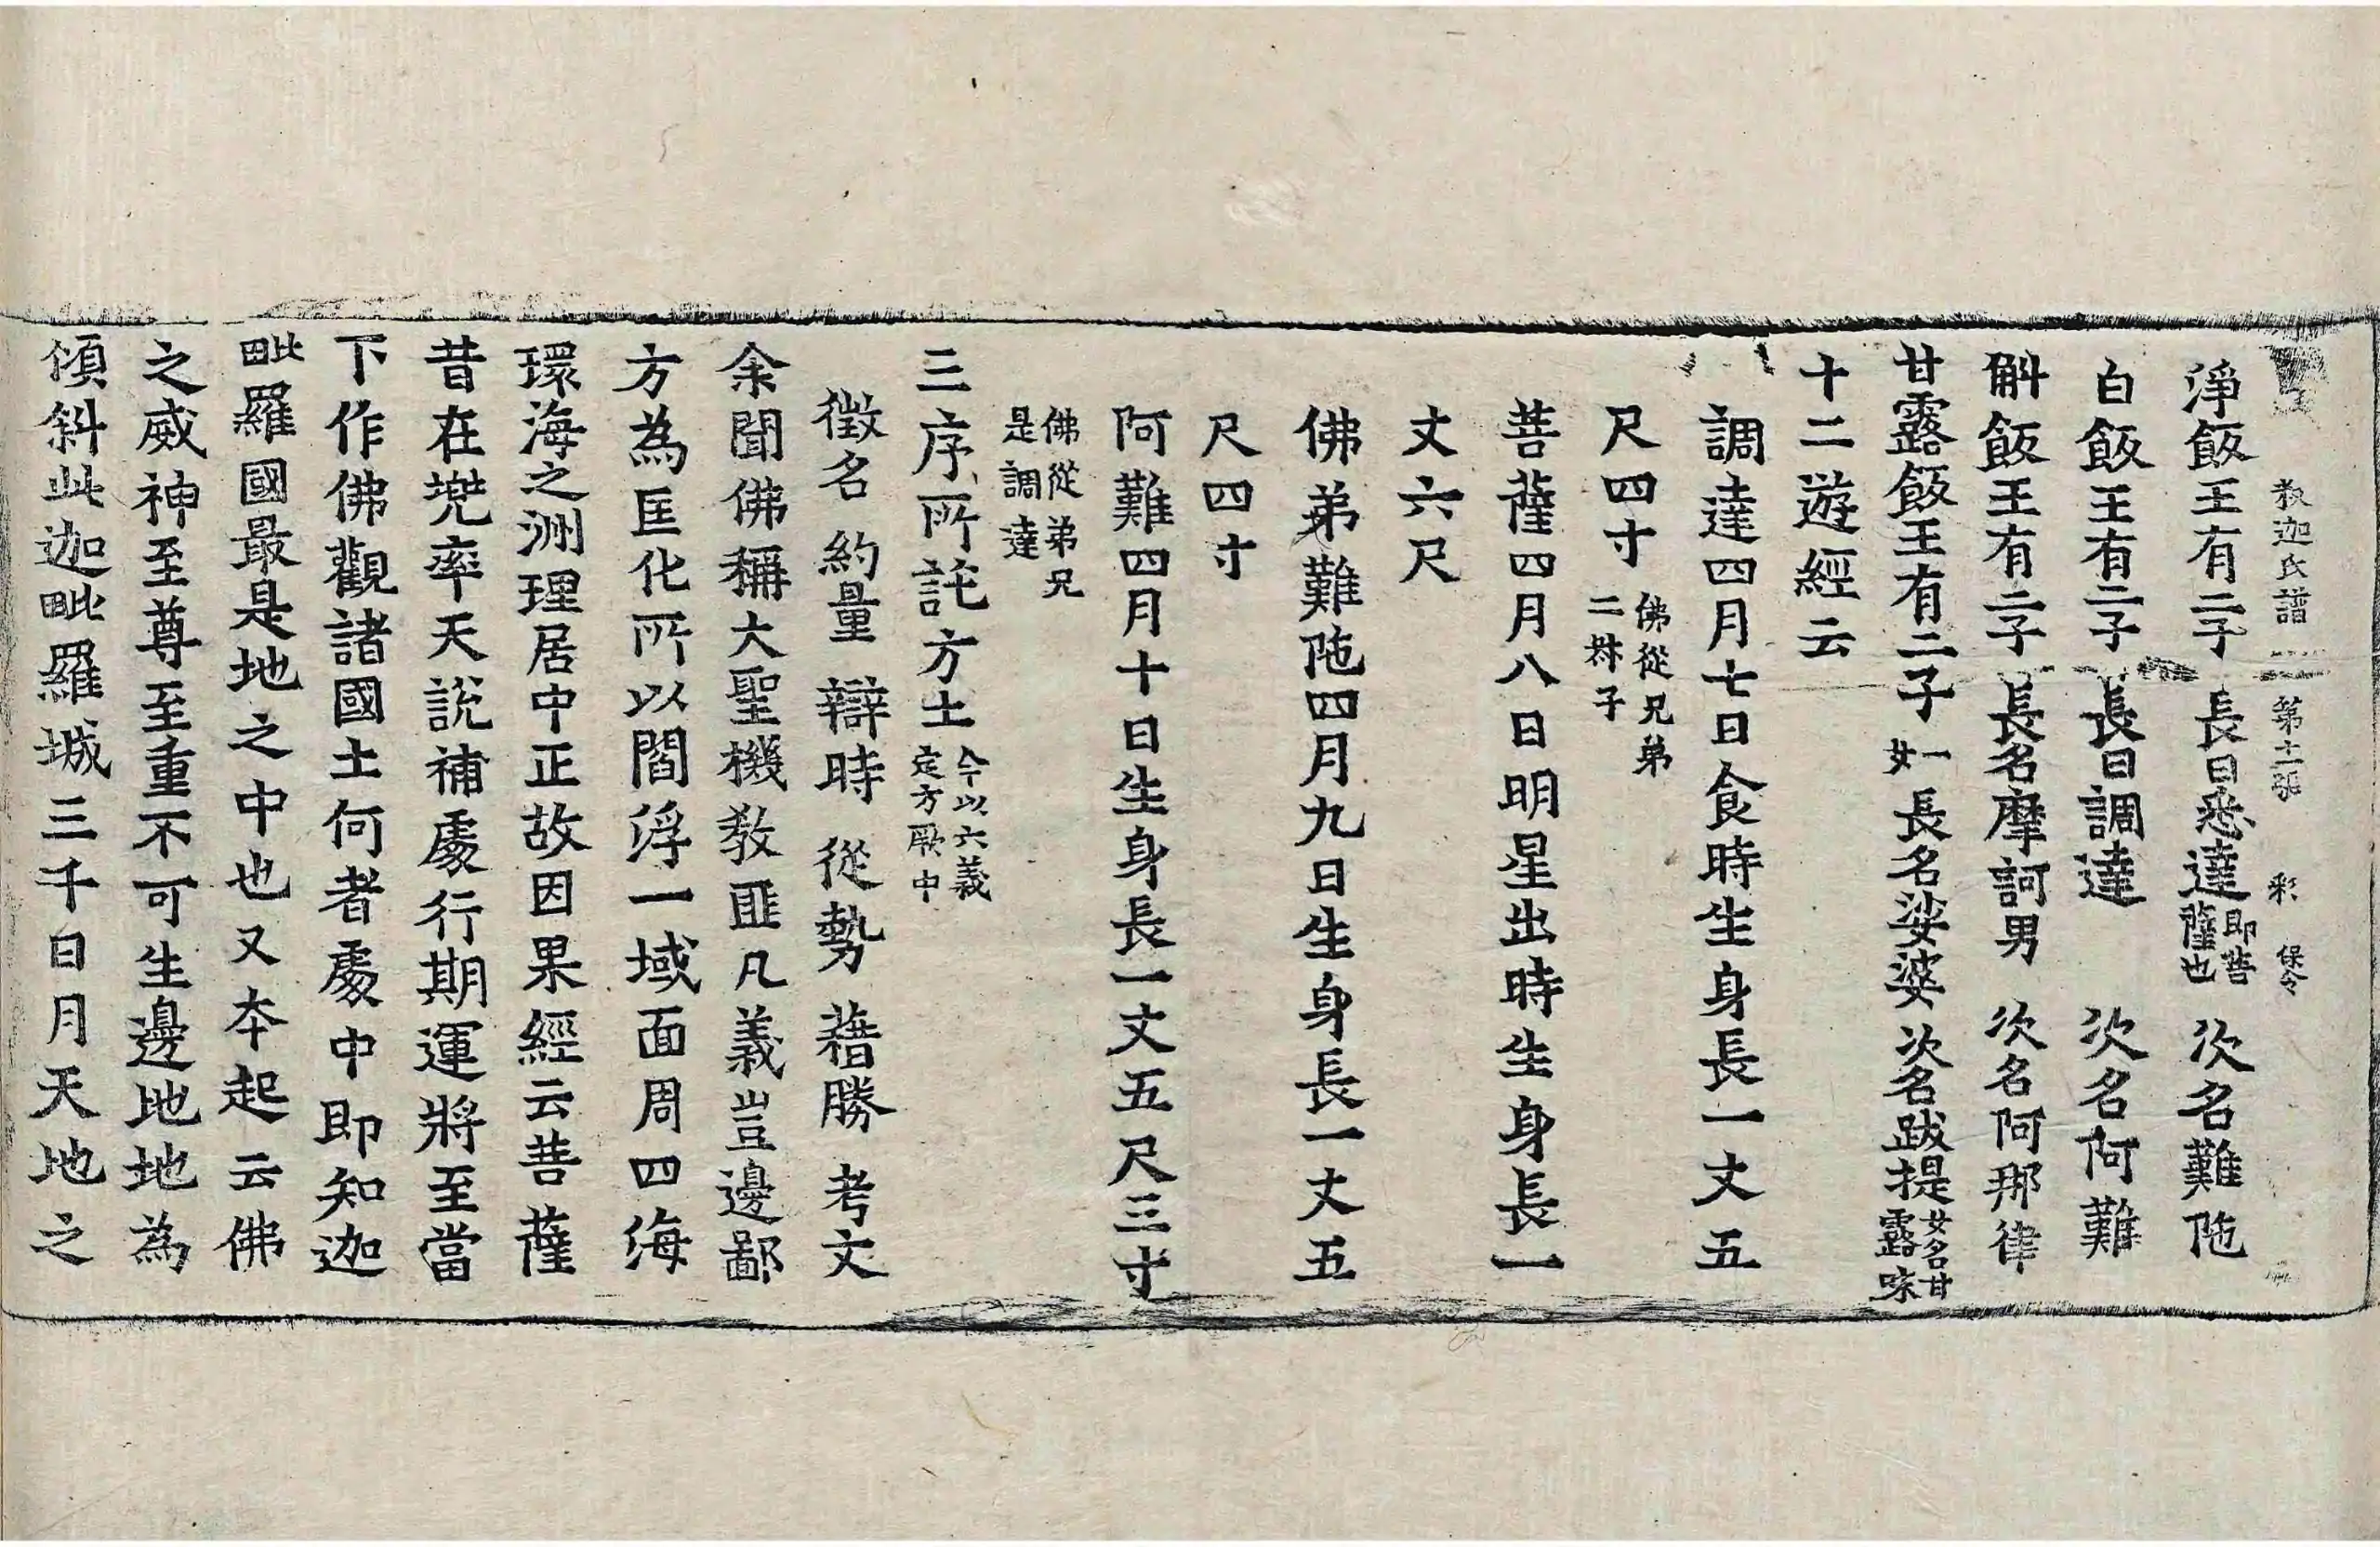 釋迦氏譜 第十二張 彩 保令
淨飯王有二子 長曰悉達 即菩薩也 次名難陁
白飯王有二子 長曰調達 次名阿難
斛飯王有二子 長名摩訶男 次名阿那律
甘露飯王有二子一女 長名娑婆 次名跋提 女名甘露味
十二遊經云
調達四月七日食時生身長一丈五
尺四寸 佛從兄弟二叔子
菩薩四月八日明星出時生身長一
丈六尺
佛弟難陁四月九日生身長一丈五
尺四寸
阿難四月十日生身長一丈五尺三寸
佛從弟兄是調達
三序所託方土 今以六義定方厥中
徵名 約量 辯時 從勢 藉勝 考文
余聞佛稱大聖機敎匪凡義豈邊鄙
方為匡化所以閻浮一域面周四海
環海之洲理居中正故因果經云菩薩
昔在兠率天說補處行期運將至當
下作佛觀諸國土何者處中即知迦
毗羅國最是地之中也又本起云佛
之威神至尊至重不可生邊地地為
傾斜此迦毗羅城三千日月天地之